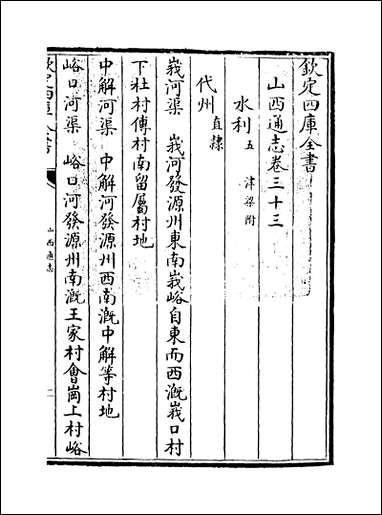 欽定四庫全書
山西通志卷三十三
水利五 津梁附
代州直隸
峩河渠 峩河發源州東南峩峪自東而西溉峩口村
下社村傅村南留屬村地
中解河渠 中解河發源州西南溉中解等村地
峪口河渠 峪口河發源州南溉王家村會崗上村峪
山西通志